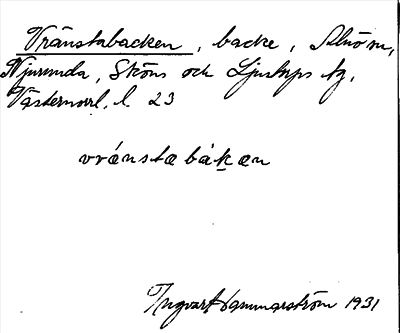 Vränstabacken, backe, Alnön,
Njurunda, Sköns och Ljustorps tg,
Västernorrl. l. 23
vránstabákan
Ingvart Hammarström 1931